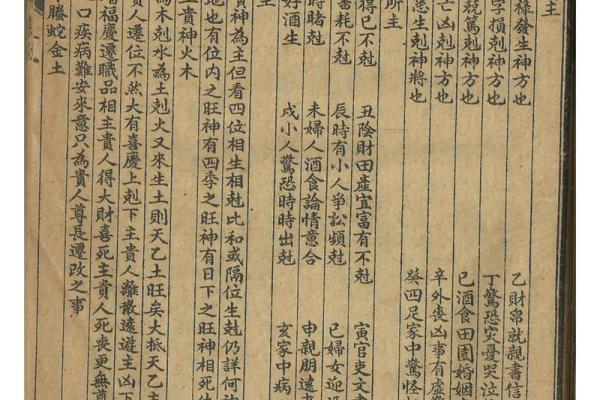 主
祿發生神方也
字損剋神方也
競篤剋神方也
亡凶剋神方也
忌生剋神將也
乙財帛就親書信
丁驚恐灾憂哭泣
己酒食田園婚姻
辛外喪凶事有虛
癸四足家中驚怪
所主
得已不剋
丑陰財田產宜富有不剋
寅官吏文書
畜耗不剋
辰時有小人爭訟頻剋
巳婦女
時賭剋
未婦人酒食論情意合
申親朋遠
好酒生
戌小人驚恐時時出剋
亥家中病
主
貴神為主但看四位相生相剋比和或隔位生剋仍詳何
地也有位內之旺神有四季之旺神有日下之旺神相死
貴神火木
為木剋水為土剋火又來生土則天乙土旺矣大抵天乙主
貴人遷位不然大有喜慶上剋下主貴人離散遠遊主凶下
福慶遷職品相主貴人得大財喜死主貴人死喪更無
口疾病難安來意只為貴人尊長遷改之事
螣蛇金土